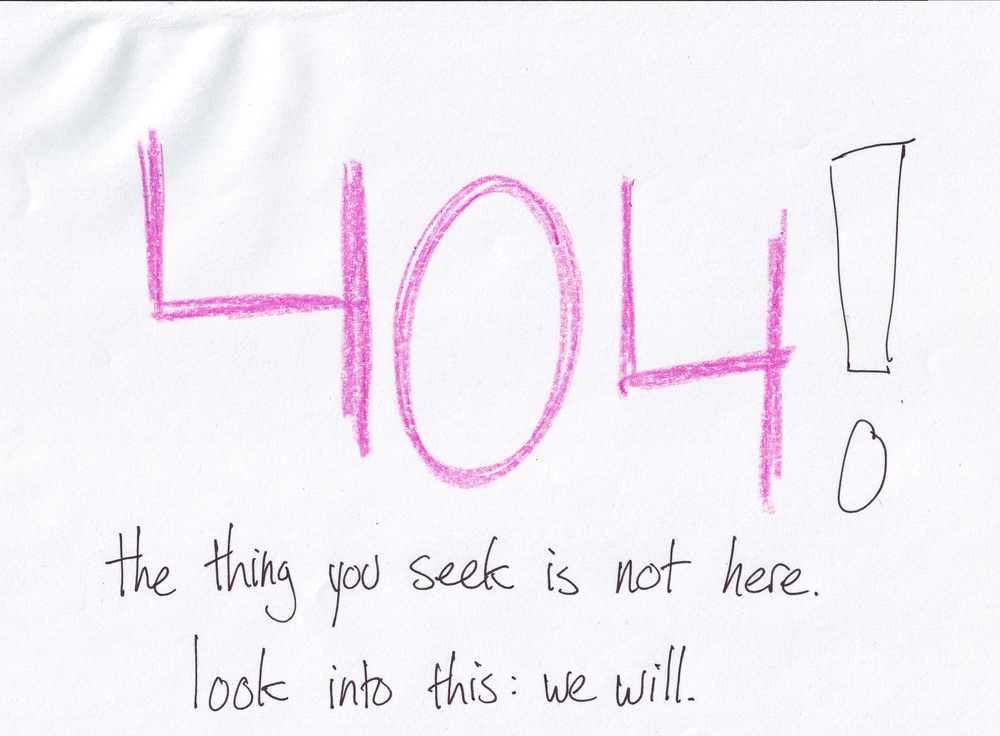 404!
the thing you seek is not here.
look into this: we will.